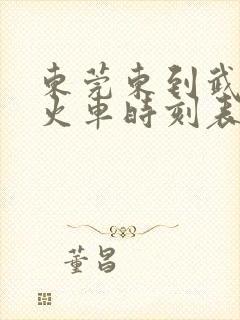 東莞東到武
火車時刻表
董昌